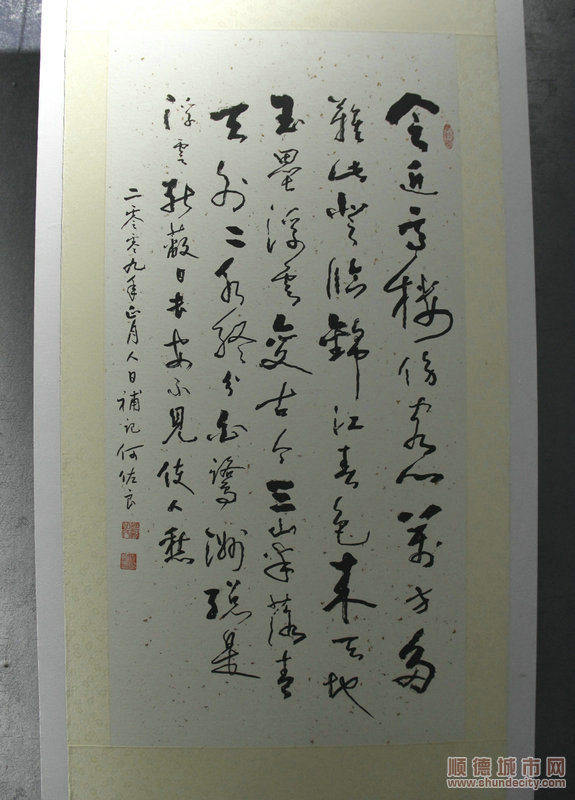 花近高楼傷客心萬方多
難此登臨錦江春色来天地
玉壘浮雲變古今三山半落青
天外二水終分白鷺洲總是
浮雲能蔽日長安不見使人愁
二零零九年正月人日補記何佐良
顺德城市网
www.shundecity.com